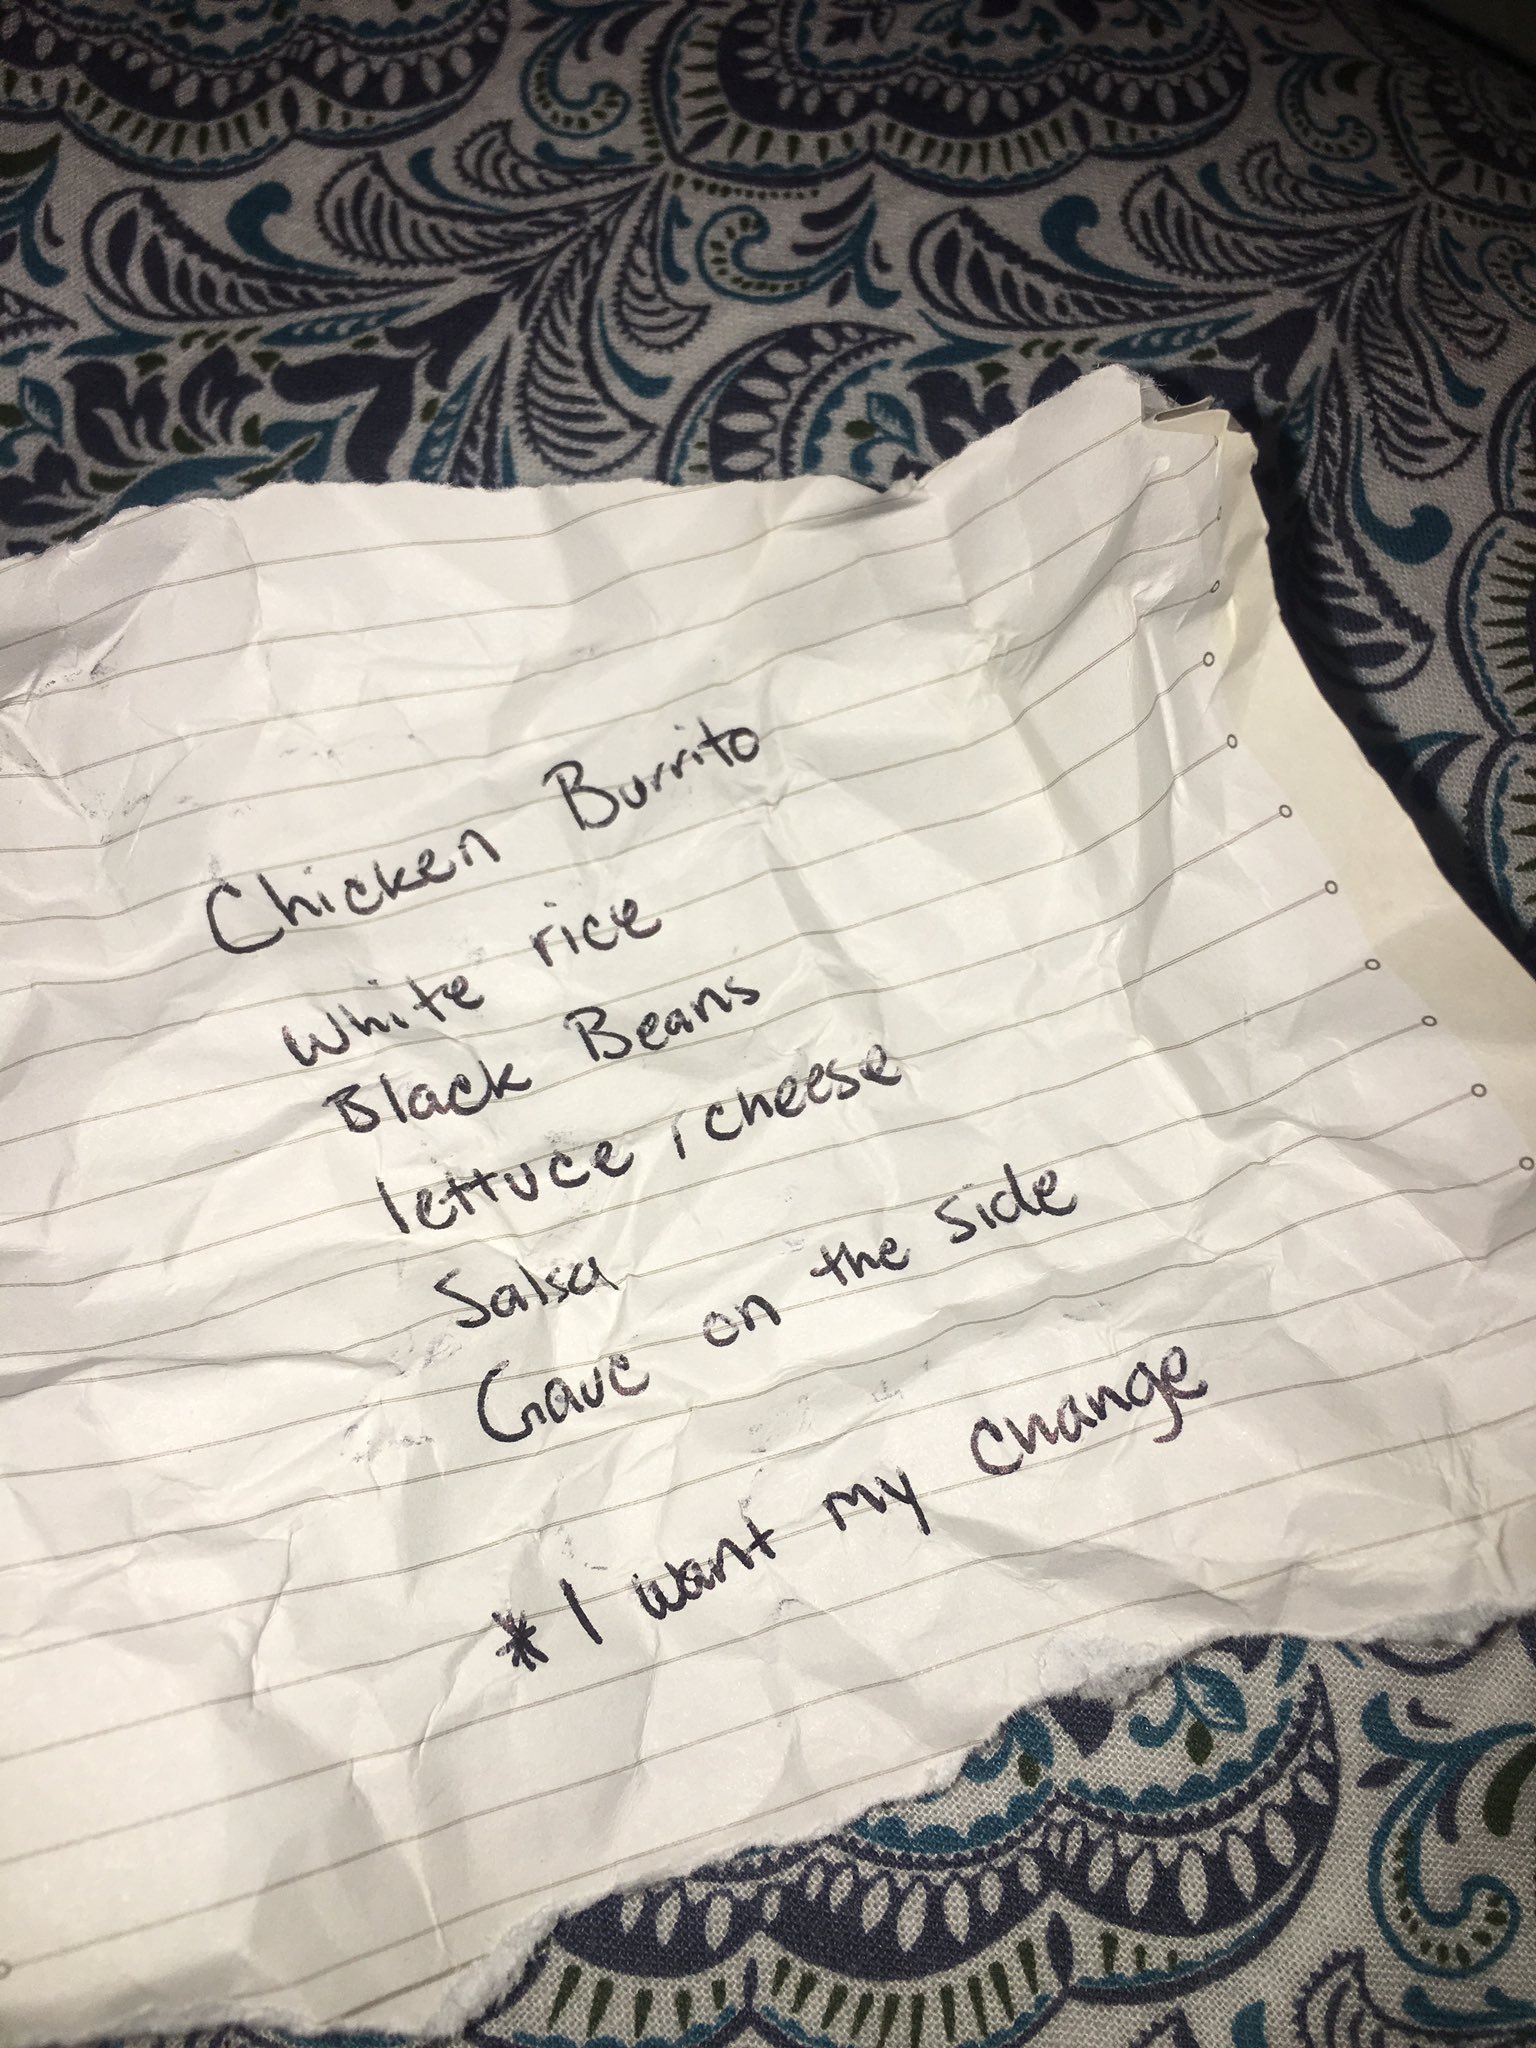 Chicken Burrito
white rice
Black Beans
lettuce, cheese
Salsa
Gauc on the side
* I want my change